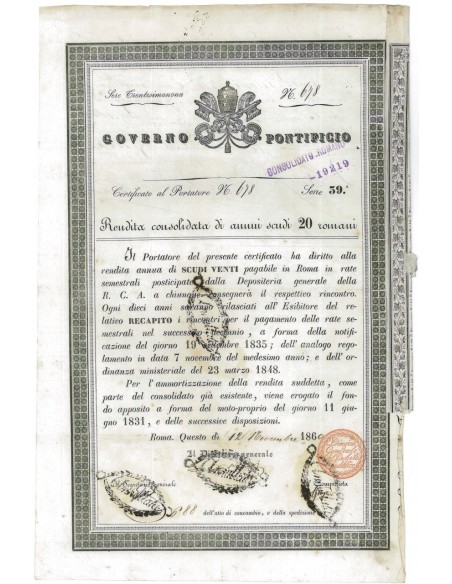 Serie Trentesimanona
N. 678
GOVERNO PONTIFICIO
CONSOLIDATO ROMANO
-19219
Certificato al Portatore N. 678 Serie 39.a
Rendita consolidata di annui scudi 20 romani
Il Portatore del presente certificato ha diritto alla
rendita annua di SCUDI VENTI pagabile in Roma in rate
semestrali posticipate dalla Depositeria generale della
R. C. A. a chiunque consegnerà il respettivo rincontro.
Ogni dieci anni saranno rilasciati all'Esibitore del re-
lativo RECAPITO i rincontri per il pagamento delle rate se-
mestrali nel successivo decennio, a forma della notifi-
cazione del giorno 19 settembre 1835; dell'analogo rego-
lamento in data 7 novembre del medesimo anno; e dell'or-
dinanza ministeriale del 23 marzo 1848.
Per l'ammortizzazione della rendita suddetta, come
parte del consolidato già esistente, viene erogato il fon-
do apposito a forma del moto-proprio del giorno 11 giu-
gno 1831, e delle successive disposizioni.
Roma. Questo di 12 186
Il generale
Il generale
Computista
N. 88 dell'atto di concambio, e della spedizione